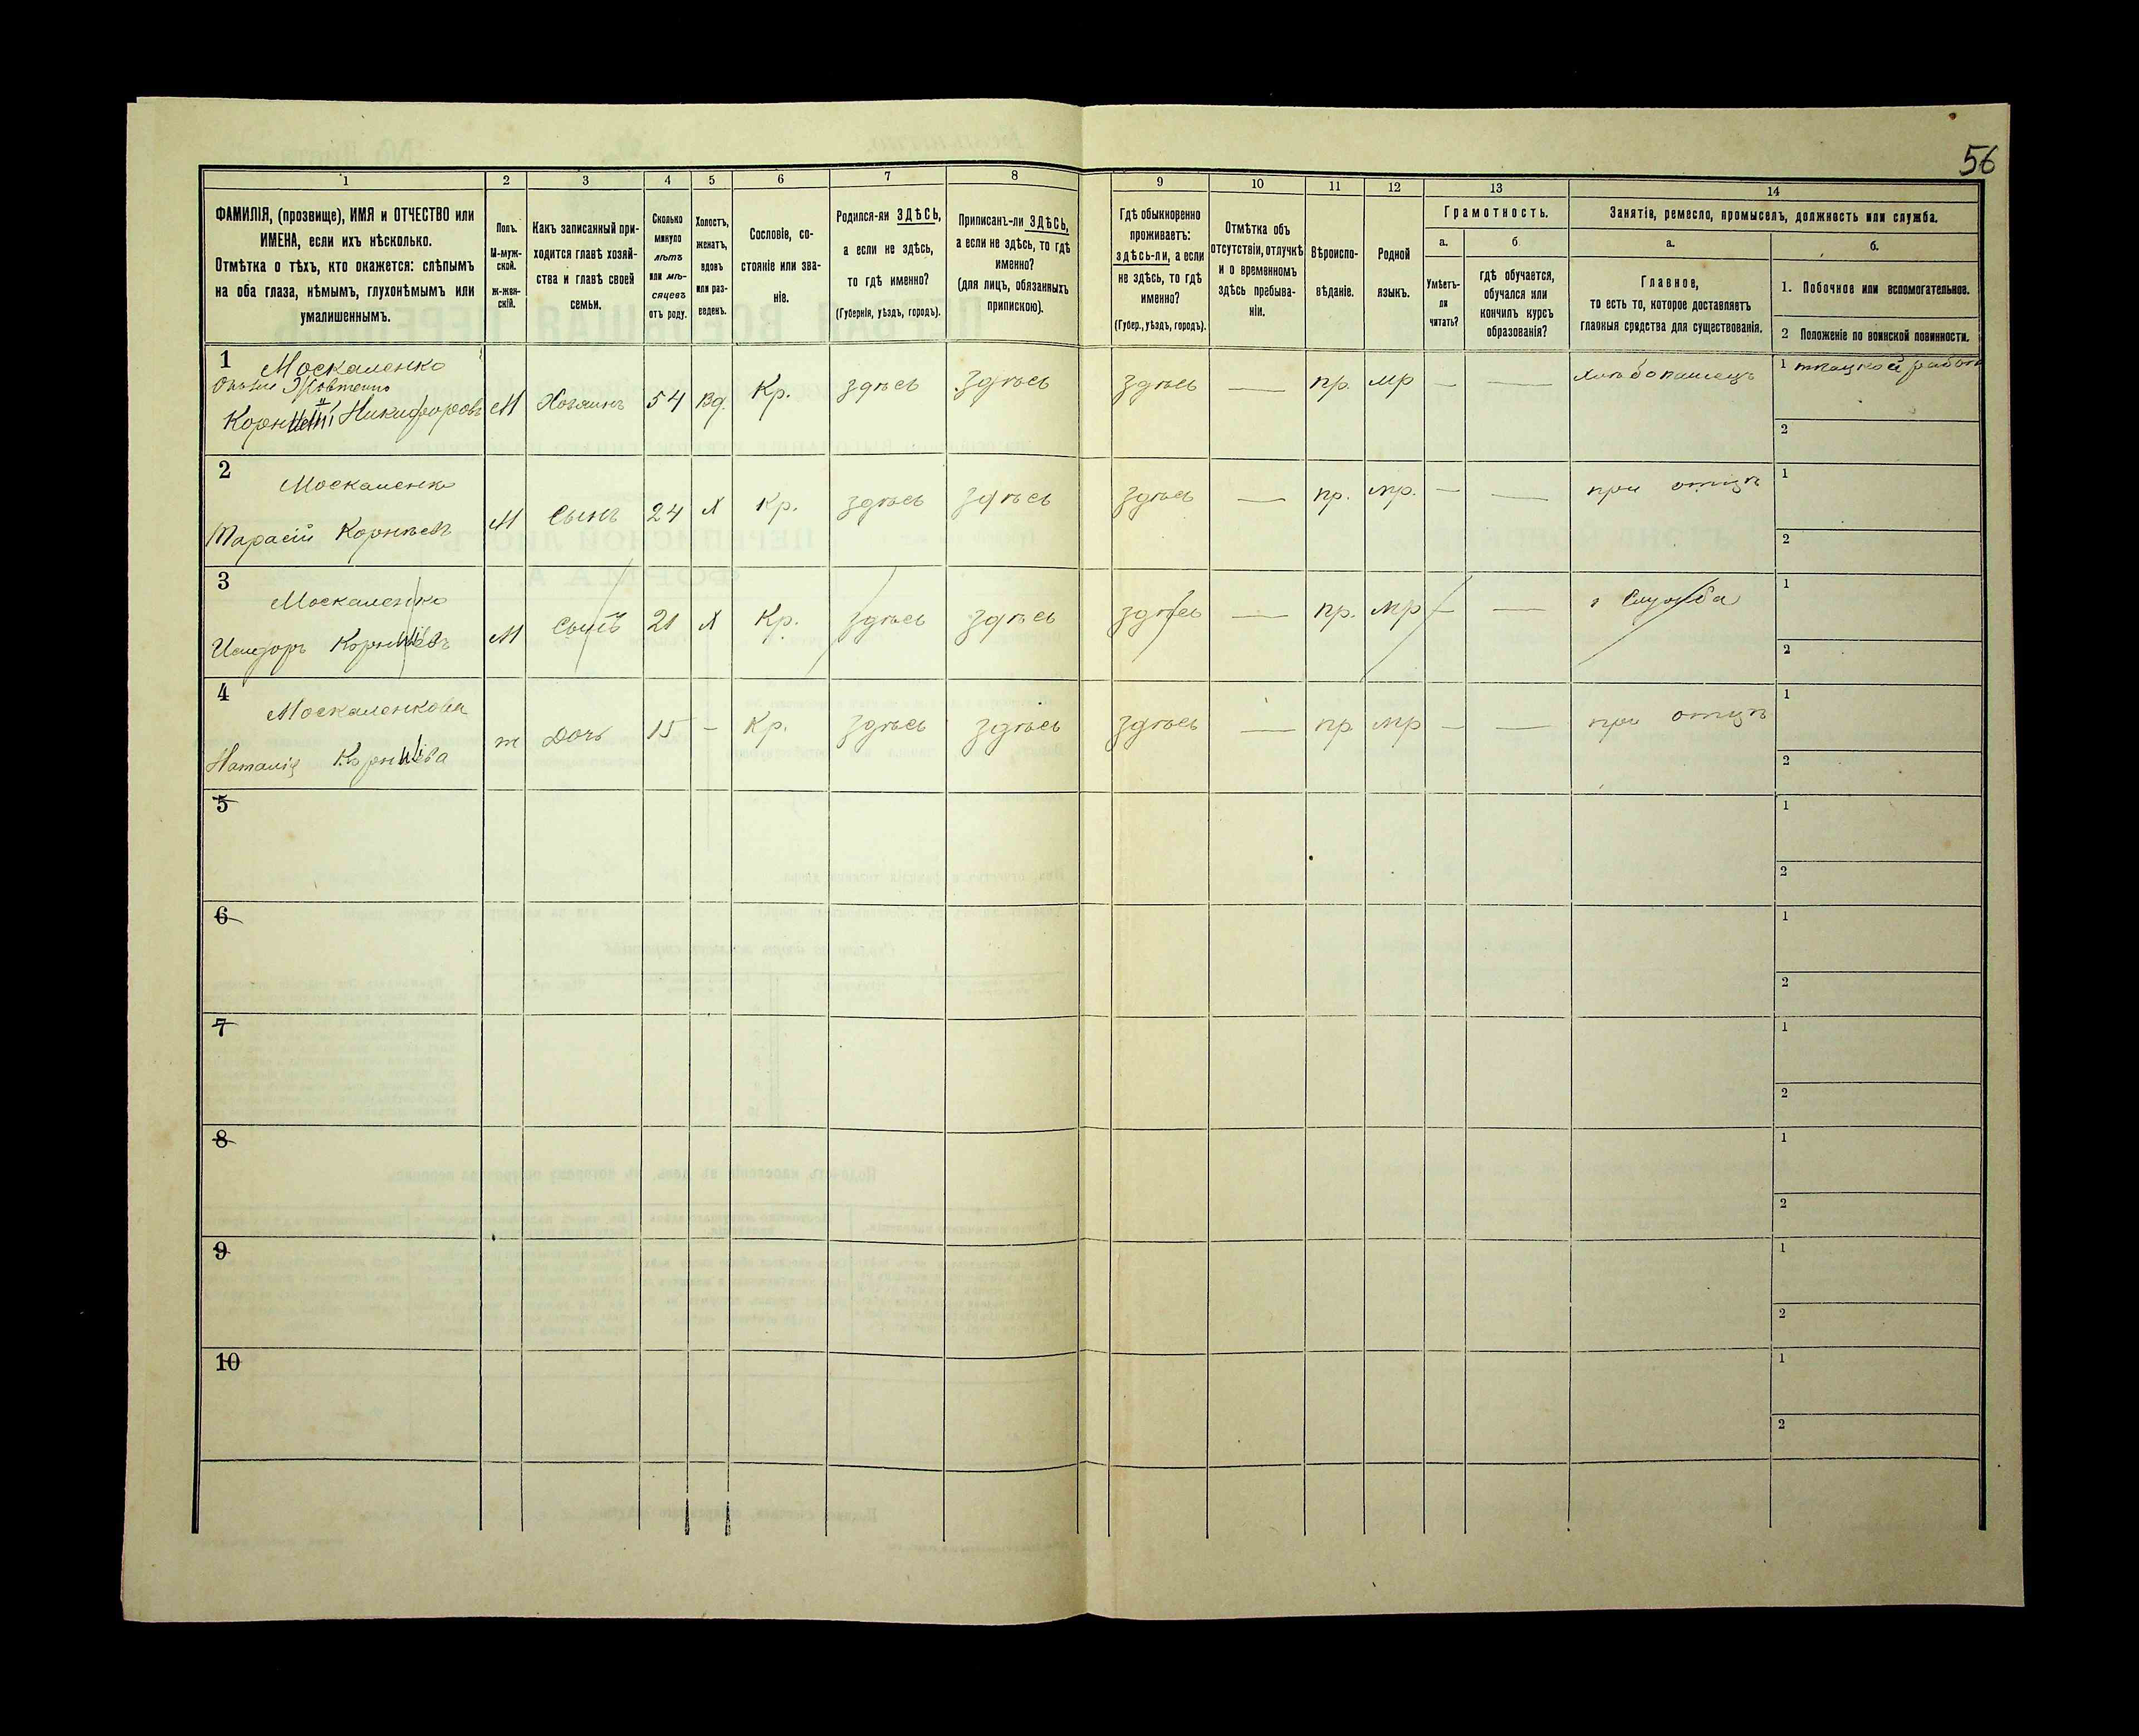 56
1 2 3 4 5 6 7 8 9 10 11 12 13 14
ФАМИЛІЯ, (прозвище), ИМЯ и ОТЧЕСТВО или
ИМЕНА, если ихъ нѣсколько.
Отмѣтка о тѣхъ, кто окажется: слѣпымъ
на оба глаза, нѣмымъ, глухонѣмымъ или
умалишеннымъ.
Полъ.
М-муж-
ской.
ж-жен-
скій.
Какъ записанный при-
ходится главѣ хозяй-
ства и главѣ своей
семьи.
Сколько
минуло
лѣтъ
или мѣ-
сяцевъ
отъ роду.
Холостъ,
женатъ,
вдовъ
или раз-
веденъ.
Сословіе, со-
стояніе или зва-
ніе.
Родился-ли ЗДѢСЬ,
а если не здѣсь,
то гдѣ именно?
(Губернія, уѣздъ, городъ).
Приписанъ-ли ЗДѢСЬ,
а если не здѣсь, то гдѣ
именно?
(для лицъ, обязанныхъ
припискою).
Гдѣ обыкновенно
проживаетъ:
здѣсь-ли, а если
не здѣсь, то гдѣ
именно?
(Губер., уѣздъ, городъ).
Отмѣтка объ
отсутствіи, отлучкѣ
и о временномъ
здѣсь пребыва-
ніи.
Вѣроиспо-
вѣданіе.
Родной
языкъ.
Грамотность.
а. б
Умѣетъ-
ли
читать?
гдѣ обучается,
обучался или
кончилъ курсъ
образованія?
Занятія, ремесло, промыселъ, должность или служба.
а. б.
Главное,
то есть то, которое доставляетъ
главныя средства для существованія.
1. Побочное или вспомогательное.
2 Положеніе по воинской повинности.
1 Москаленко
Корній Никифоровъ М Хозяинъ 54 вд. Кр. здѣсь здѣсь здѣсь — пр. мр — — хлѣбопашецъ 1 ткацкой
2
2 Москаленко
Тарасій Корнѣевъ М Сынъ 24 х Кр. здѣсь здѣсь здѣсь — пр. мр. — — при отцѣ 1
2
3 Москаленко
Исидоръ Корніевъ М Сынъ 21 х Кр. здѣсь здѣсь здѣсь — пр. мр — — Служба 1
2
4 Москаленкова
Наталія Корніева ж Дочь 15 — Кр. здѣсь здѣсь здѣсь — пр мр — — при отцѣ 1
2
5 1
2
6 1
2
7 1
2
8 1
2
9 1
2
10 1
2